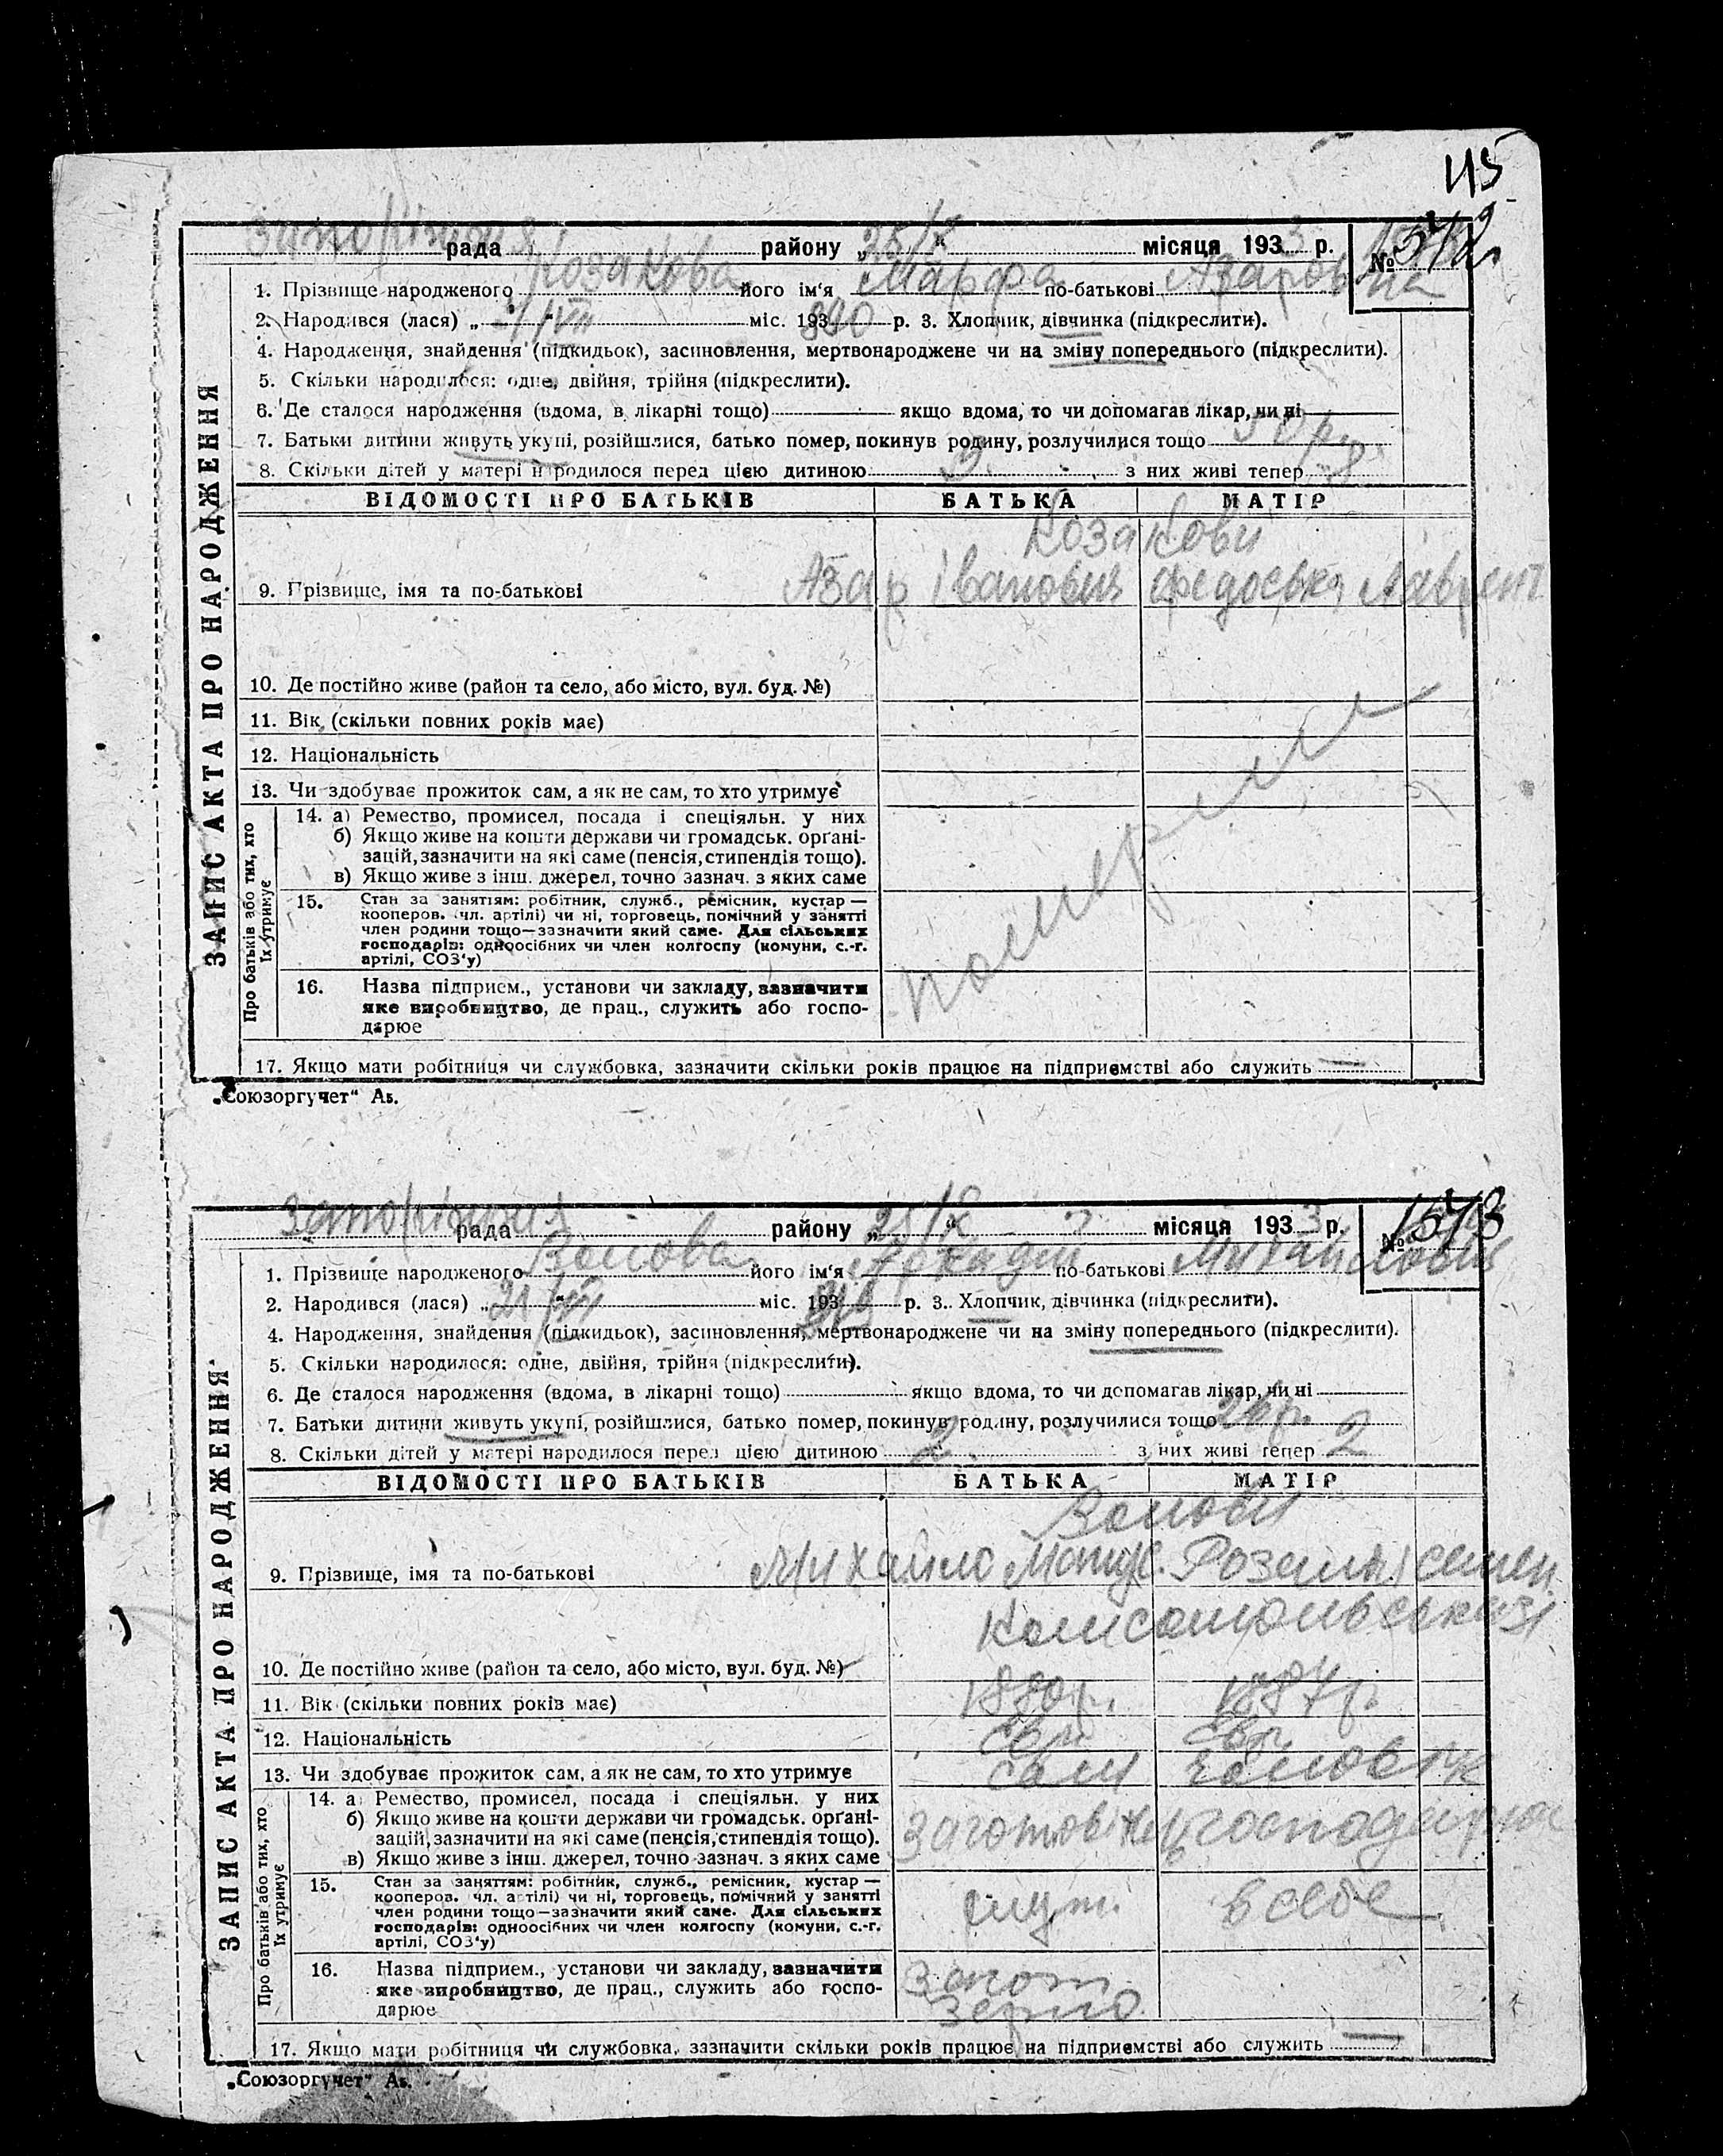 115
Запоріжжя рада району „25/X“ місяця 1933 р. № 572
1. Прізвище народженого Козакова його ім'я Марфа по-батькові Азаровна
2. Народився (лася) „ 4/VII міс. 193 р. 3. Хлопчик, дівчинка (підкреслити).
4. Народження, знайдення (підкидьок), засиновлення, мертвонароджене чи на зміну попереднього (підкреслити).
5. Скільки народилося: одне, двійня, трійня (підкреслити).
6. Де сталося народження (вдома, в лікарні тощо) якщо вдома, то чи допомагав лікар, чи ні
7. Батьки дитини живуть укупі, розійшлися, батько помер, покинув родину, розлучилися тощо
8. Скільки дітей у матері народилося перед цією дитиною 3. з них живі тепер
ВІДОМОСТІ ПРО БАТЬКІВ БАТЬКА МАТІР
Козакови
9. Прізвище, імя та по-батькові Азар Іванович Лаврент
10. Де постійно живе (район та село, або місто, вул. буд. №)
11. Вік (скільки повних років має)
12. Національність
13. Чи здобуває прожиток сам, а як не сам, то хто утримує
14. а) Ремество, промисел, посада і спеціяльн. у них
б) Якщо живе на кошти держави чи громадськ. органі-
зацій, зазначити на які саме (пенсія, стипендія тощо).
в) Якщо живе з інш. джерел, точно зазнач. з яких саме
померли
15. Стан за заняттям: робітник, служб., ремісник, кустар —
кооперов. чл. артілі) чи ні, торговець, помічний у занятті
член родини тощо—зазначити який саме. Для сільських
господарів: одноосібних чи член колгоспу (комуни, с.-г.
артілі, СОЗ'у)
16. Назва підприєм., установи чи закладу, зазначити
яке виробництво, де прац., служить або госпо-
дарює
17. Якщо мати робітниця чи службовка, зазначити скільки років працює на підприємстві або служить —
ЗАПИС АКТА ПРО НАРОДЖЕННЯ
Про батьків або тих, хто
їх утримує
„Союзоргучет“ Аб.
Запоріжжя рада району „25/X“ місяця 1933 р. № 1573
1. Прізвище народженого його ім'я Аркадій по-батькові Михайлович
2. Народився (лася) „21/VII міс. 193 р. 3. Хлопчик, дівчинка (підкреслити).
4. Народження, знайдення (підкидьок), засиновлення, мертвонароджене чи на зміну попереднього (підкреслити).
5. Скільки народилося: одне, двійня, трійня (підкреслити).
6. Де сталося народження (вдома, в лікарні тощо) якщо вдома, то чи допомагав лікар, чи ні
7. Батьки дитини живуть укупі, розійшлися, батько помер, покинув родину, розлучилися тощо 26 р.
8. Скільки дітей у матері народилося перед цією дитиною 2. з них живі тепер 2
ВІДОМОСТІ ПРО БАТЬКІВ БАТЬКА МАТІР
9. Прізвище, імя та по-батькові Михайло Розалія Семен.
Комсомольська 31
10. Де постійно живе (район та село, або місто, вул. буд. №)
11. Вік (скільки повних років має) 1880 р. 1887 р.
12. Національність євр. євр.
13. Чи здобуває прожиток сам, а як не сам, то хто утримує сам чоловік
14. а) Ремество, промисел, посада і спеціяльн. у них
б) Якщо живе на кошти держави чи громадськ. органі-
зацій, зазначити на які саме (пенсія, стипендія тощо).
заготівец господарює
в) Якщо живе з інш. джерел, точно зазнач. з яких саме
15. Стан за заняттям: робітник, служб., ремісник, кустар —
кооперов. чл. артілі) чи ні, торговець, помічний у занятті
член родини тощо—зазначити який саме. Для сільських
господарів: одноосібних чи член колгоспу (комуни, с.-г.
артілі, СОЗ'у)
служ. в себе
16. Назва підприєм., установи чи закладу, зазначити
яке виробництво, де прац., служить або госпо-
дарює
Загот
зерно
17. Якщо мати робітниця чи службовка, зазначити скільки років працює на підприємстві або служить —
ЗАПИС АКТА ПРО НАРОДЖЕННЯ
Про батьків або тих, хто
їх утримує
„Союзоргучет“ Аб.